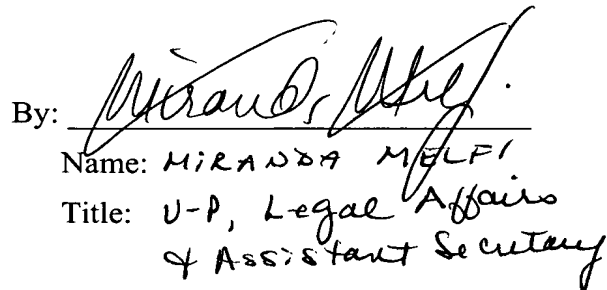 By: Miranda Melfi
Name: MiRANDA MELFI
Title: V-P, Legal Affairs
& Assistant Secretary